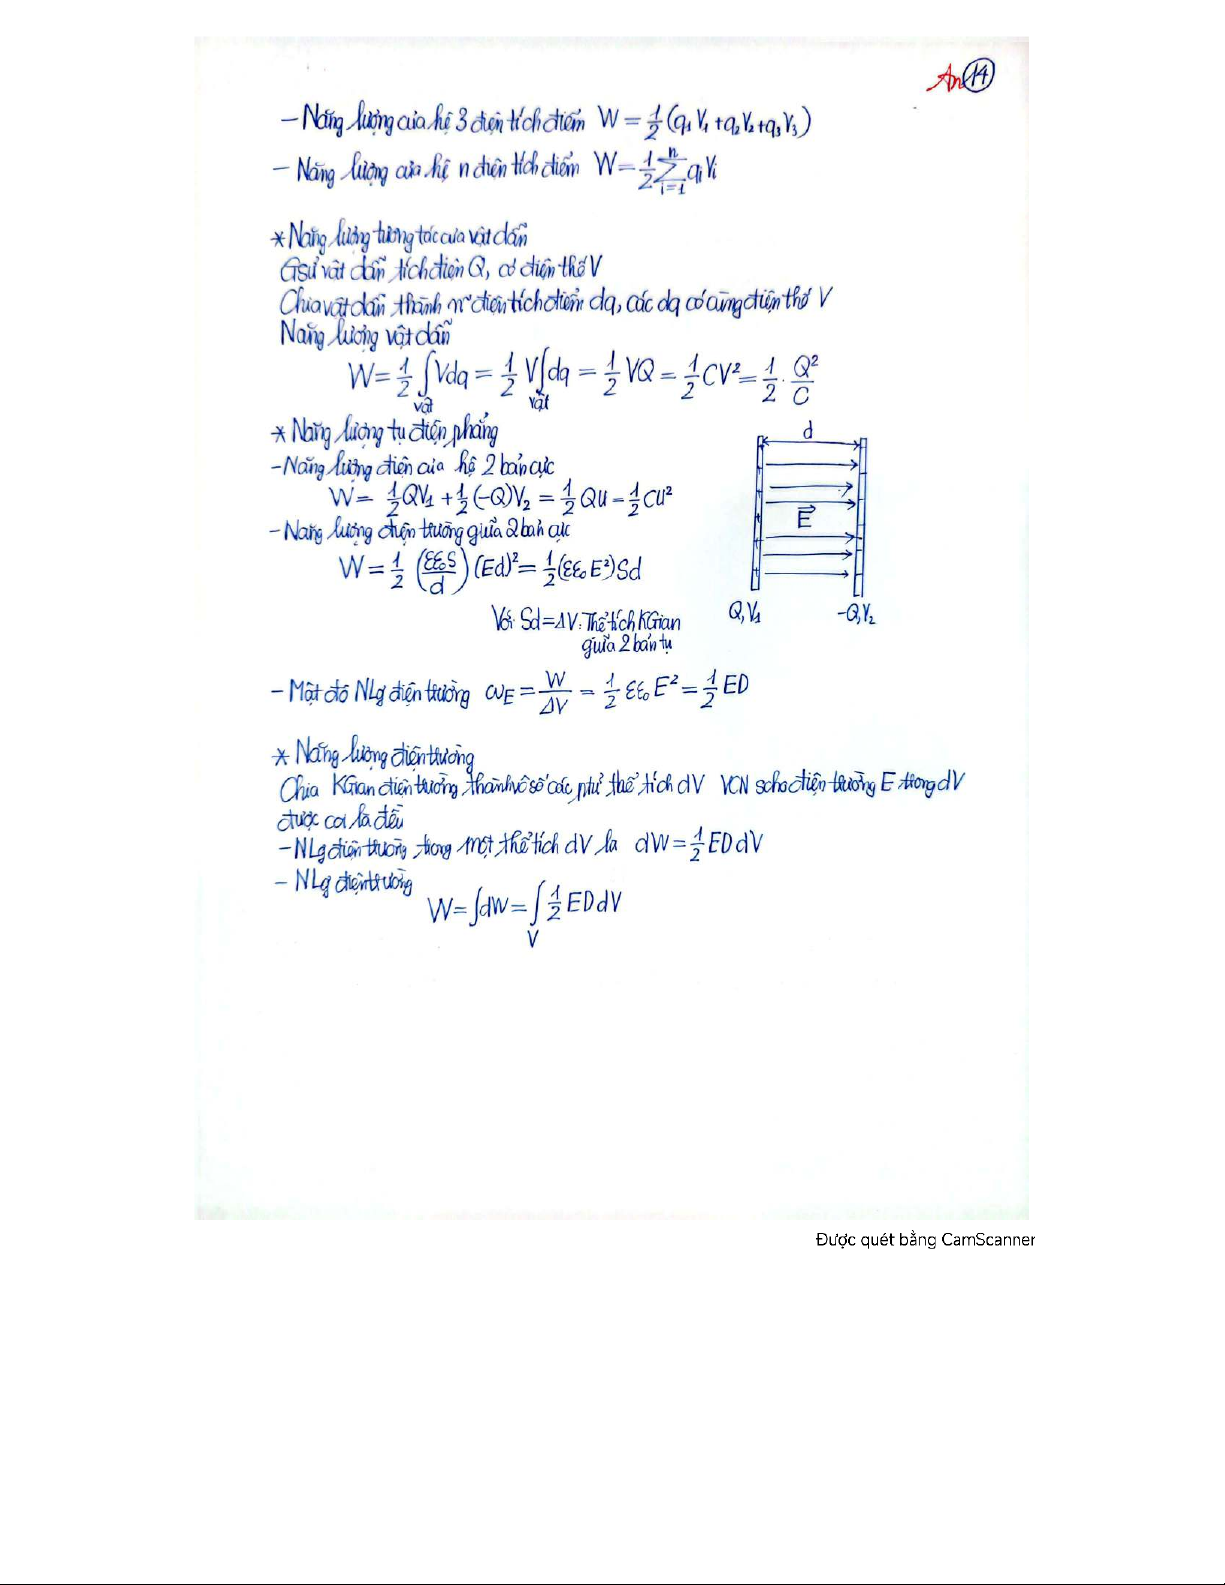 An 14
- Năng lượng của hệ 3 điện tích điểm W = 1/2 (q₁V₁ + q₂V₂ + q₃V₃)
- Năng lượng của hệ n điện tích điểm W = 1/2 Σᵢ₌₁ⁿ qᵢVᵢ
* Năng lượng tương tác của vật dẫn
Gsử vật dẫn tích điện Q, có điện thế V
Chia vật dẫn thành n điện tích điểm dq, các dq có cùng điện thế V
Năng lượng vật dẫn
W = 1/2 ∫vật Vdq = 1/2 V ∫vật dq = 1/2 VQ = 1/2 CV² = 1/2 . Q²/C
* Năng lượng tụ điện phẳng
- Năng lượng điện của hệ 2 bản cực
W = 1/2 QV₁ + 1/2 (-Q)V₂ = 1/2 QU = 1/2 CU²
- Năng lượng điện trường giữa 2 bản cực
W = 1/2 (εε₀S/d) (Ed)² = 1/2 (εε₀E²)Sd
Với Sd = ΔV: Thể tích KGian
giữa 2 bản tụ
d
E⃗
Q, V₁ -Q, V₂
- Mật độ NLg điện trường ωE = W/ΔV = 1/2 εε₀E² = 1/2 ED
* Năng lượng điện trường
Chia KGian điện trường thành vô số các phtử thể tích dV VCN scho điện trường E trong dV
được coi là đều
- NLg điện trường trong một thể tích dV là dW = 1/2 ED dV
- NLg điện trường
W = ∫dW = ∫V 1/2 ED dV
Được quét bằng CamScanner